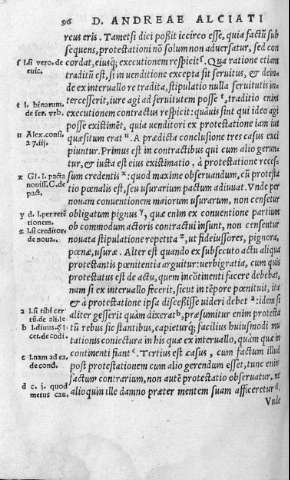 96 D. ANDREAE ALCIATI
reus eris. Tametsi dici possit iccirco esse, quia factũ sub
sequens, protestationi nõ solum non aduersatur, sed con
cordat, eiusq; executionem respicit ſ. Qua ratione etiam
traditũ est, si in uenditione excepta sit seruitus, & dein=
de ex interuallo re tradita, stipulatio nulla seruitutis in
tercesserit, iure agi ad seruitutem posse ᵗ, traditio enim
executionem contractus respicit: quãuis sint qui ideo agi
posse existimẽt, quia uenditori ex protestatione iam ius
quæsitum erat ᵘ. A prædicta conclusione tres casus exci
piuntur. Primus est in contractibus qui cum alio gerun=
tur, & iusta est eius existimatio, à protestatione reces=
sum credentis ˣ: quod maxime obseruandum, cũ protesta
tio pœnalis est, seu usurarium pactum adiuuat. Vnde per
nouam conuentionem maiorum usurarum, non censetur
obligatum pignus ʸ, quæ enim ex conuentione partium
ob commodum actoris contractui insunt, non censentur
nouata stipulatione repetita ᶻ, ut fideiussores, pignora,
pœnæ, usuræ. Alter est quando ex subsecuto actu aliquã
protestantis pœnitentia arguitur: uerbi gratia, cum quis
protestatus est de actu, quem incõtinenti facere debebat,
nam si ex interuallo fecerit, sicut in tẽpore pœnituit, ita
& à protestatione ipsa discessisse uideri debet ᵃ: idem si
aliter gesserit quàm dixerat ᵇ, præsumitur enim protesta
tũ rebus sic stantibus, capiturq; facilius huiusmodi mu
tationis coniectura in his quæ ex interuallo, quàm quæ in
continenti fiant ᶜ. Tertius est casus, cum factum illud
post protestationem cum alio gerendum esset, tunc enim
factum contrarium, non autẽ protestatio obseruatur, ne
alioquin ille damno præter mentem suam afficeretur ᵈ.
Vnde
ſ l.si uero. de
euic.
t l. binarum.
de ser. urb.
u Alex. cons.
x Gl. l. pacta
nouiss. C. de
pact.
z l.si creditor.
de noua.
c l.nam ad ea.
de cond.
d c. j. quod
metus cau.